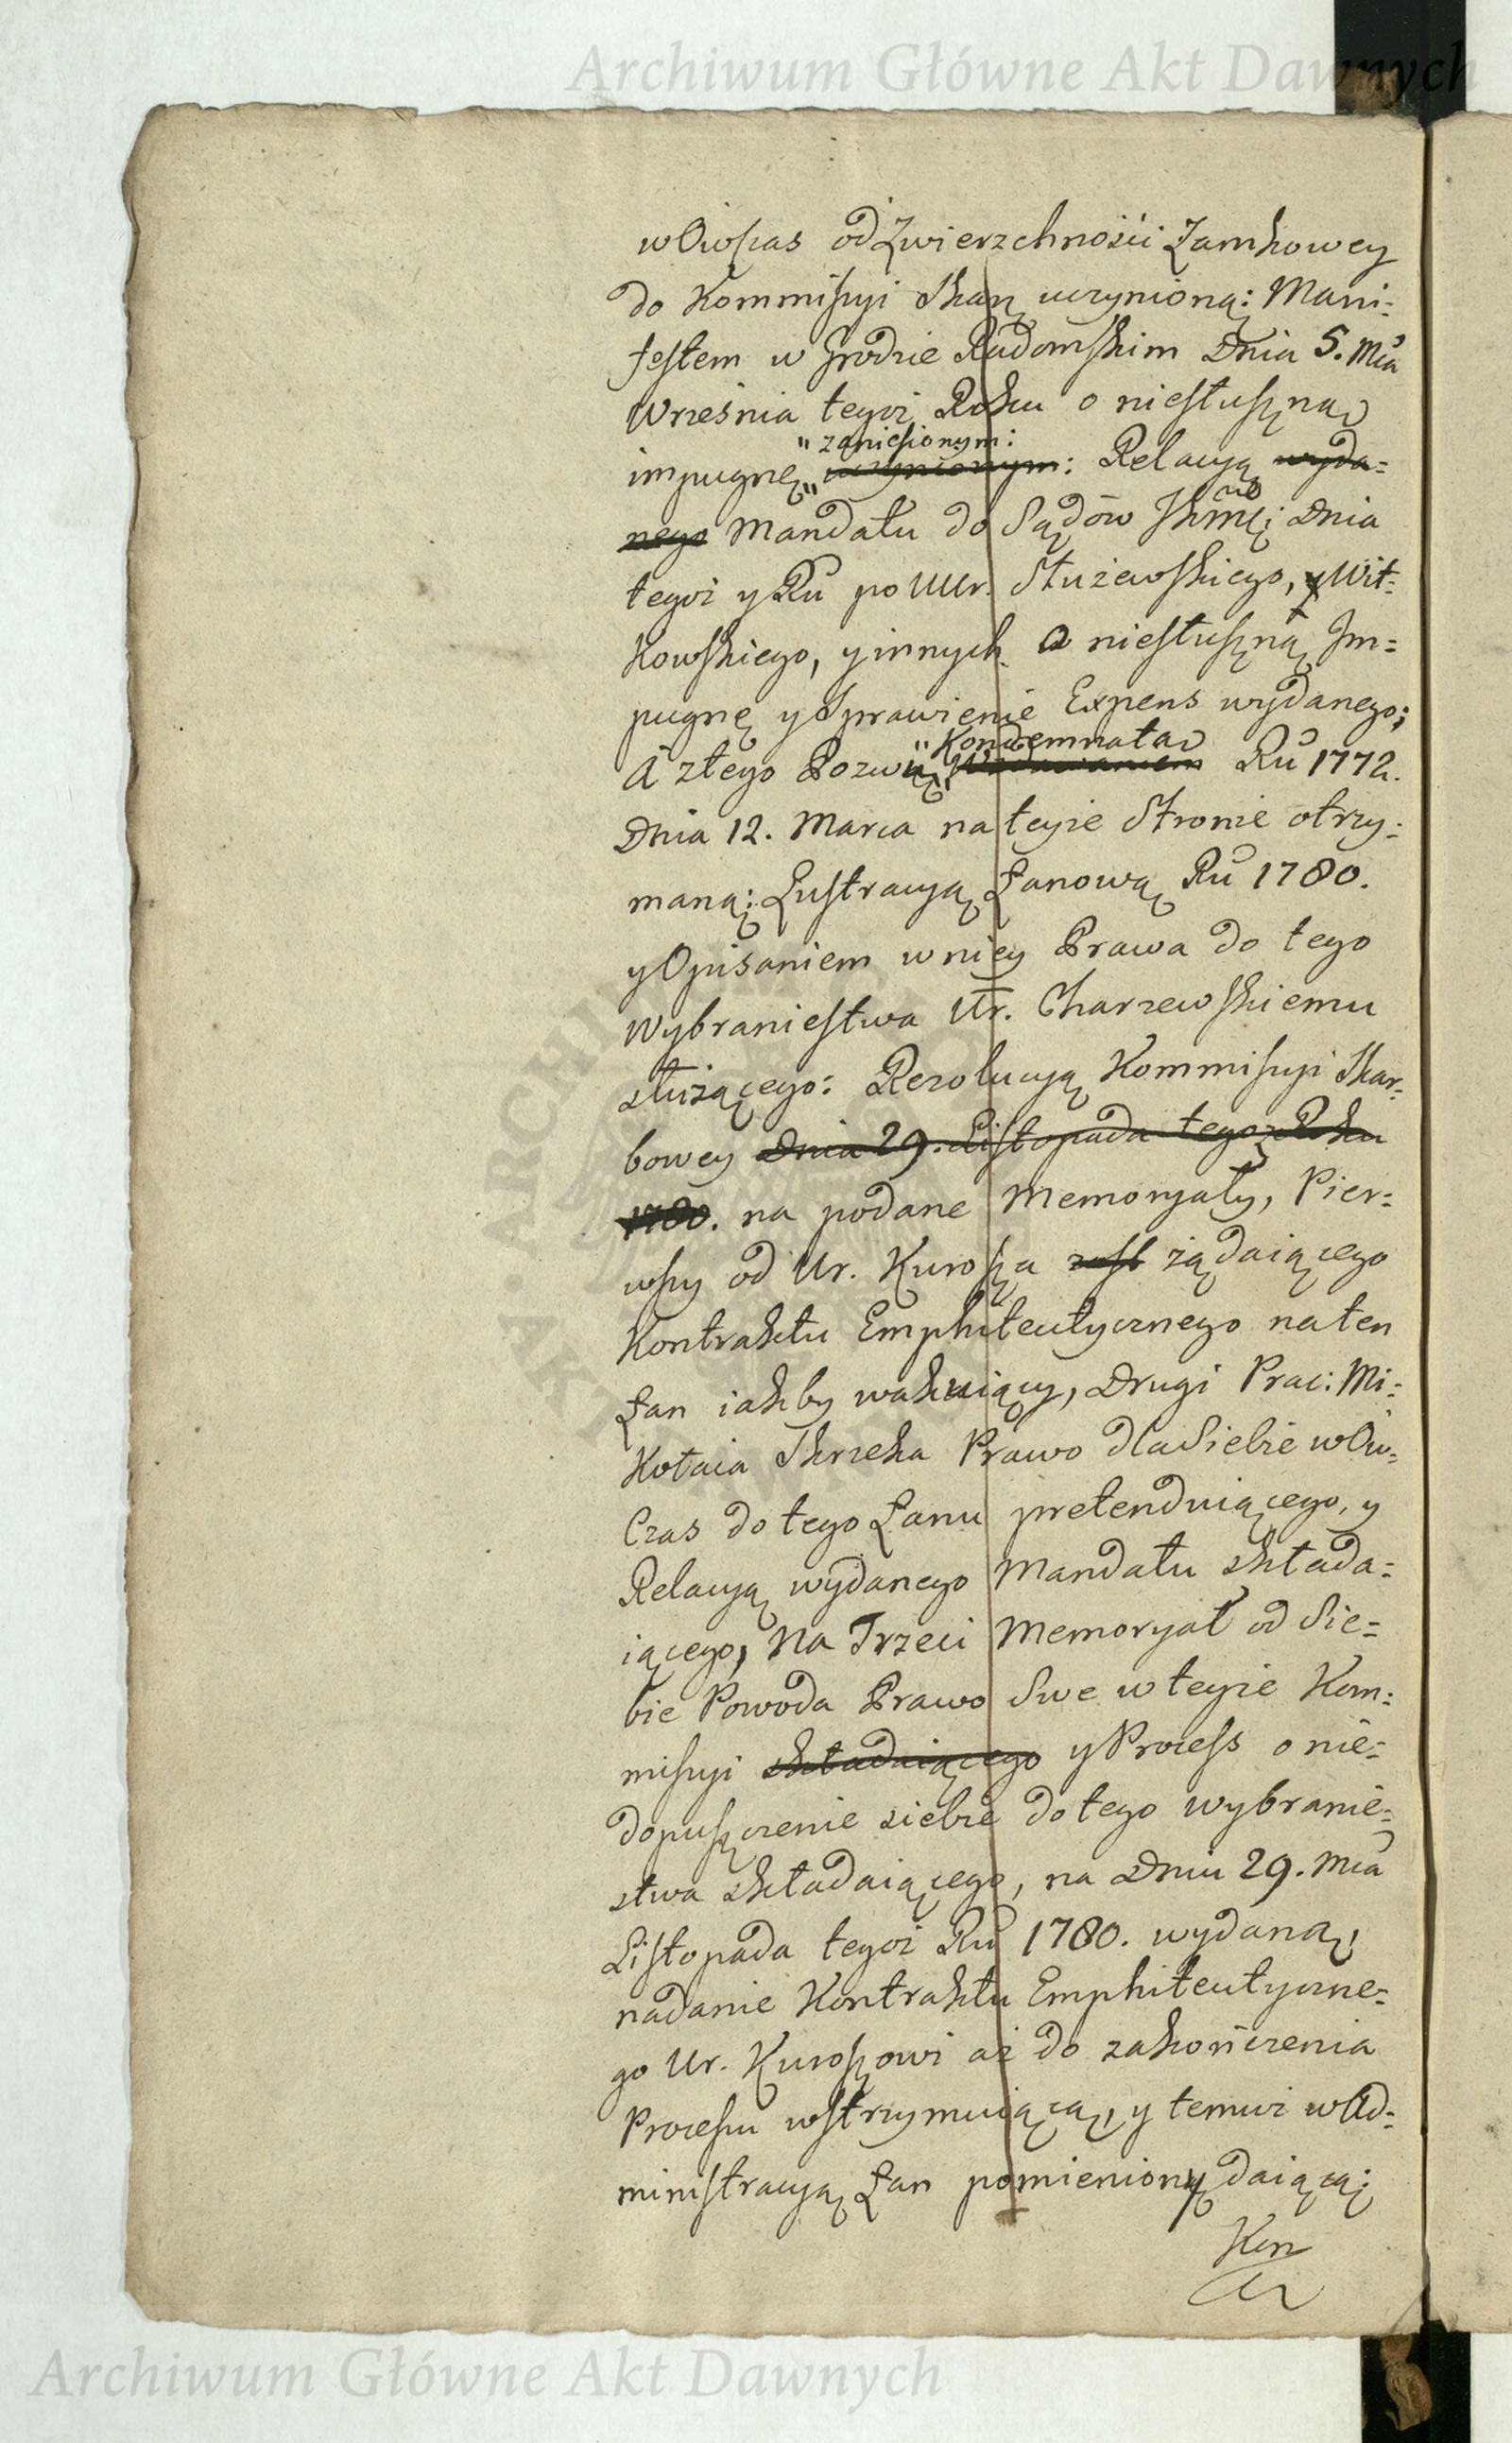 Archiwum Główne Akt Dawnych
w Owczas od Zwierzchności Zamkowey
do Kommissyi Skar. uczynioną: Mani-
festem w Grodzie Radomskim Dnia 5. Mca
Września tegoż Roku o niesłuszną
" zaniesionym:
impugnę " uczynionym: Relacyą wyda-
nego Mandatu do Sądów Dnia
tegoż y Ru po UUr. Służewskiego, y Wit-
kowskiego, y innych o niesłuszną Im-
pugnę y Sprawienie Expens wydanego;
" Kondemnatą
A z tego Pozwu Ru 1772.
Dnia 12. Marca na teyże Stronie otrzy-
maną: Lustracyą Łanową Ru 1780.
y Opisaniem w niey Prawa do tego
Wybraniestwa Ur. Charzewskiemu
służącego: Rezolucyą Kommissyi Skar-
bowey Dnia 29. Listopada tegoz Roku
1780. na podane Memoryały, Pier-
wszy od Ur. Kurosza żądaiącego
Kontraktu Emphiteutycznego na ten
Łan iakby wakuiący, Drugi Prac: Mi-
kołaia Skrzeka Prawo dla Siebie w Ow-
Czas do tego Łanu pretenduiącego, y
Relacyą wydanego Mandatu składa-
iącego, Na Trzeci Memoryał od Sie-
bie Powoda Prawo Swe w teyże Kom-
missyi składaiącego y Process o nie-
dopuszczenie siebie do tego wybranie-
stwa składaiącego, na Dniu 29. Mca
Listopada tegoż Ru 1780. wydaną,
nadanie Kontraktu Emphiteutyczne-
go Ur. Kuroszowi aż do zakończenia
Processu wstrzymuiącą, y temuż w Ad-
ministracyą Łan pomieniony daiącą:
Kon
Archiwum Główne Akt Dawnych